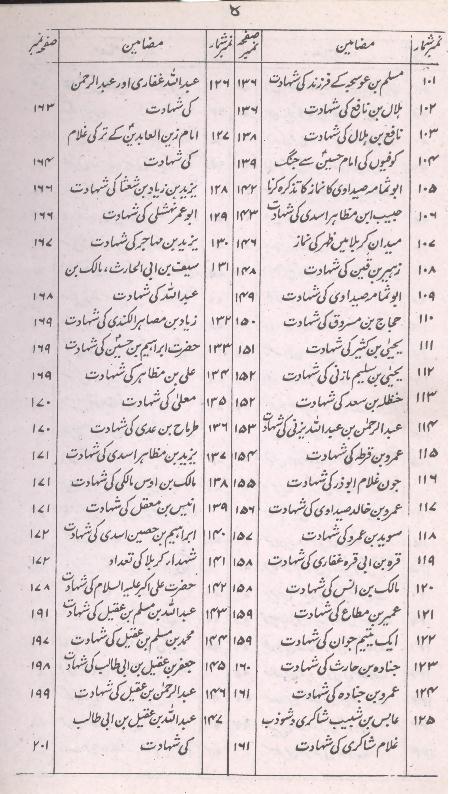 ۵
نمبرشمار مضامین صفحہ نمبر
۱۰۱ مسلم بن عوسجہ کے فرزند کی شہادت ۱۳۶
۱۰۲ ہلال بن نافع کی شہادت ۱۳۶
۱۰۳ نافع بن ہلال کی شہادت ۱۳۸
۱۰۴ کوفیوں کی امام حسینؑ سے جنگ ۱۳۹
۱۰۵ ابو ثمامہ صیداوی کا نماز کا تذکرہ کرنا ۱۴۲
۱۰۶ حبیب ابن مظاہر اسدی کی شہادت ۱۴۳
۱۰۷ میدان کربلا میں ظہر کی نماز ۱۴۶
۱۰۸ زہیر بن قین کی شہادت ۱۴۸
۱۰۹ ابو ثمامہ صیداوی کی شہادت ۱۴۹
۱۱۰ حجاج بن مسروق کی شہادت ۱۵۰
۱۱۱ یحیٰی بن کثیر کی شہادت ۱۵۱
۱۱۲ یحیٰی بن سلیم مازنی کی شہادت ۱۵۲
۱۱۳ حنظلہ بن سعد کی شہادت ۱۵۲
۱۱۴ عبدالرحمٰن بن عبداللہ یزنی کی شہادت ۱۵۳
۱۱۵ عمرو بن قرطہ کی شہادت ۱۵۴
۱۱۶ جون غلام ابوذر کی شہادت ۱۵۵
۱۱۷ عمرو بن خالد صیداوی کی شہادت ۱۵۶
۱۱۸ سوید بن عمرو کی شہادت ۱۵۷
۱۱۹ قرہ بن ابی قرہ غفاری کی شہادت ۱۵۸
۱۲۰ مالک بن انس کی شہادت ۱۵۸
۱۲۱ عمیر بن مطاع کی شہادت ۱۵۹
۱۲۲ ایک یتیم جوان کی شہادت ۱۵۹
۱۲۳ جنادہ بن حارث کی شہادت ۱۶۰
۱۲۴ عمرو بن جنادہ کی شہادت ۱۶۱
۱۲۵ عابس بن شبیب شاکری و شوذب
غلام شاکری کی شہادت ۱۶۱
نمبرشمار مضامین صفحہ نمبر
۱۲۶ عبداللہ غفاری اور عبدالرحمٰن
کی شہادت ۱۶۳
۱۲۷ امام زین العابدینؑ کے ترکی غلام
کی شہادت ۱۶۴
۱۲۸ یزید بن زیاد بن شعثا کی شہادت ۱۶۶
۱۲۹ ابو عمر نہشلی کی شہادت ۱۶۶
۱۳۰ یزید بن مہاجر کی شہادت ۱۶۷
۱۳۱ سیف بن ابی الحارث، مالک بن
عبداللہ کی شہادت ۱۶۸
۱۳۲ زیاد بن مصاہر الکندی کی شہادت ۱۶۹
۱۳۳ حضرت ابراہیم بن حسینؑ کی شہادت ۱۶۹
۱۳۴ علی بن مظاہر کی شہادت ۱۶۹
۱۳۵ معلیٰ کی شہادت ۱۷۰
۱۳۶ طرماح بن عدی کی شہادت ۱۷۰
۱۳۷ یزید بن مظاہر اسدی کی شہادت ۱۷۱
۱۳۸ مالک بن اوس مالکی کی شہادت ۱۷۱
۱۳۹ انیس بن معقل کی شہادت ۱۷۱
۱۴۰ ابراہیم بن حصین اسدی کی شہادت ۱۷۲
۱۴۱ شہداء کربلا کی تعداد ۱۷۲
۱۴۲ حضرت علی اکبر علیہ السلام کی شہادت ۱۷۸
۱۴۳ عبداللہ بن مسلم بن عقیل کی شہادت ۱۹۱
۱۴۴ محمد بن مسلم بن عقیل کی شہادت ۱۹۷
۱۴۵ جعفر بن عقیل بن ابی طالب کی شہادت ۱۹۸
۱۴۶ عبدالرحمٰن بن عقیل کی شہادت ۱۹۹
۱۴۷ عبداللہ بن عقیل بن ابی طالب
کی شہادت ۲۰۱